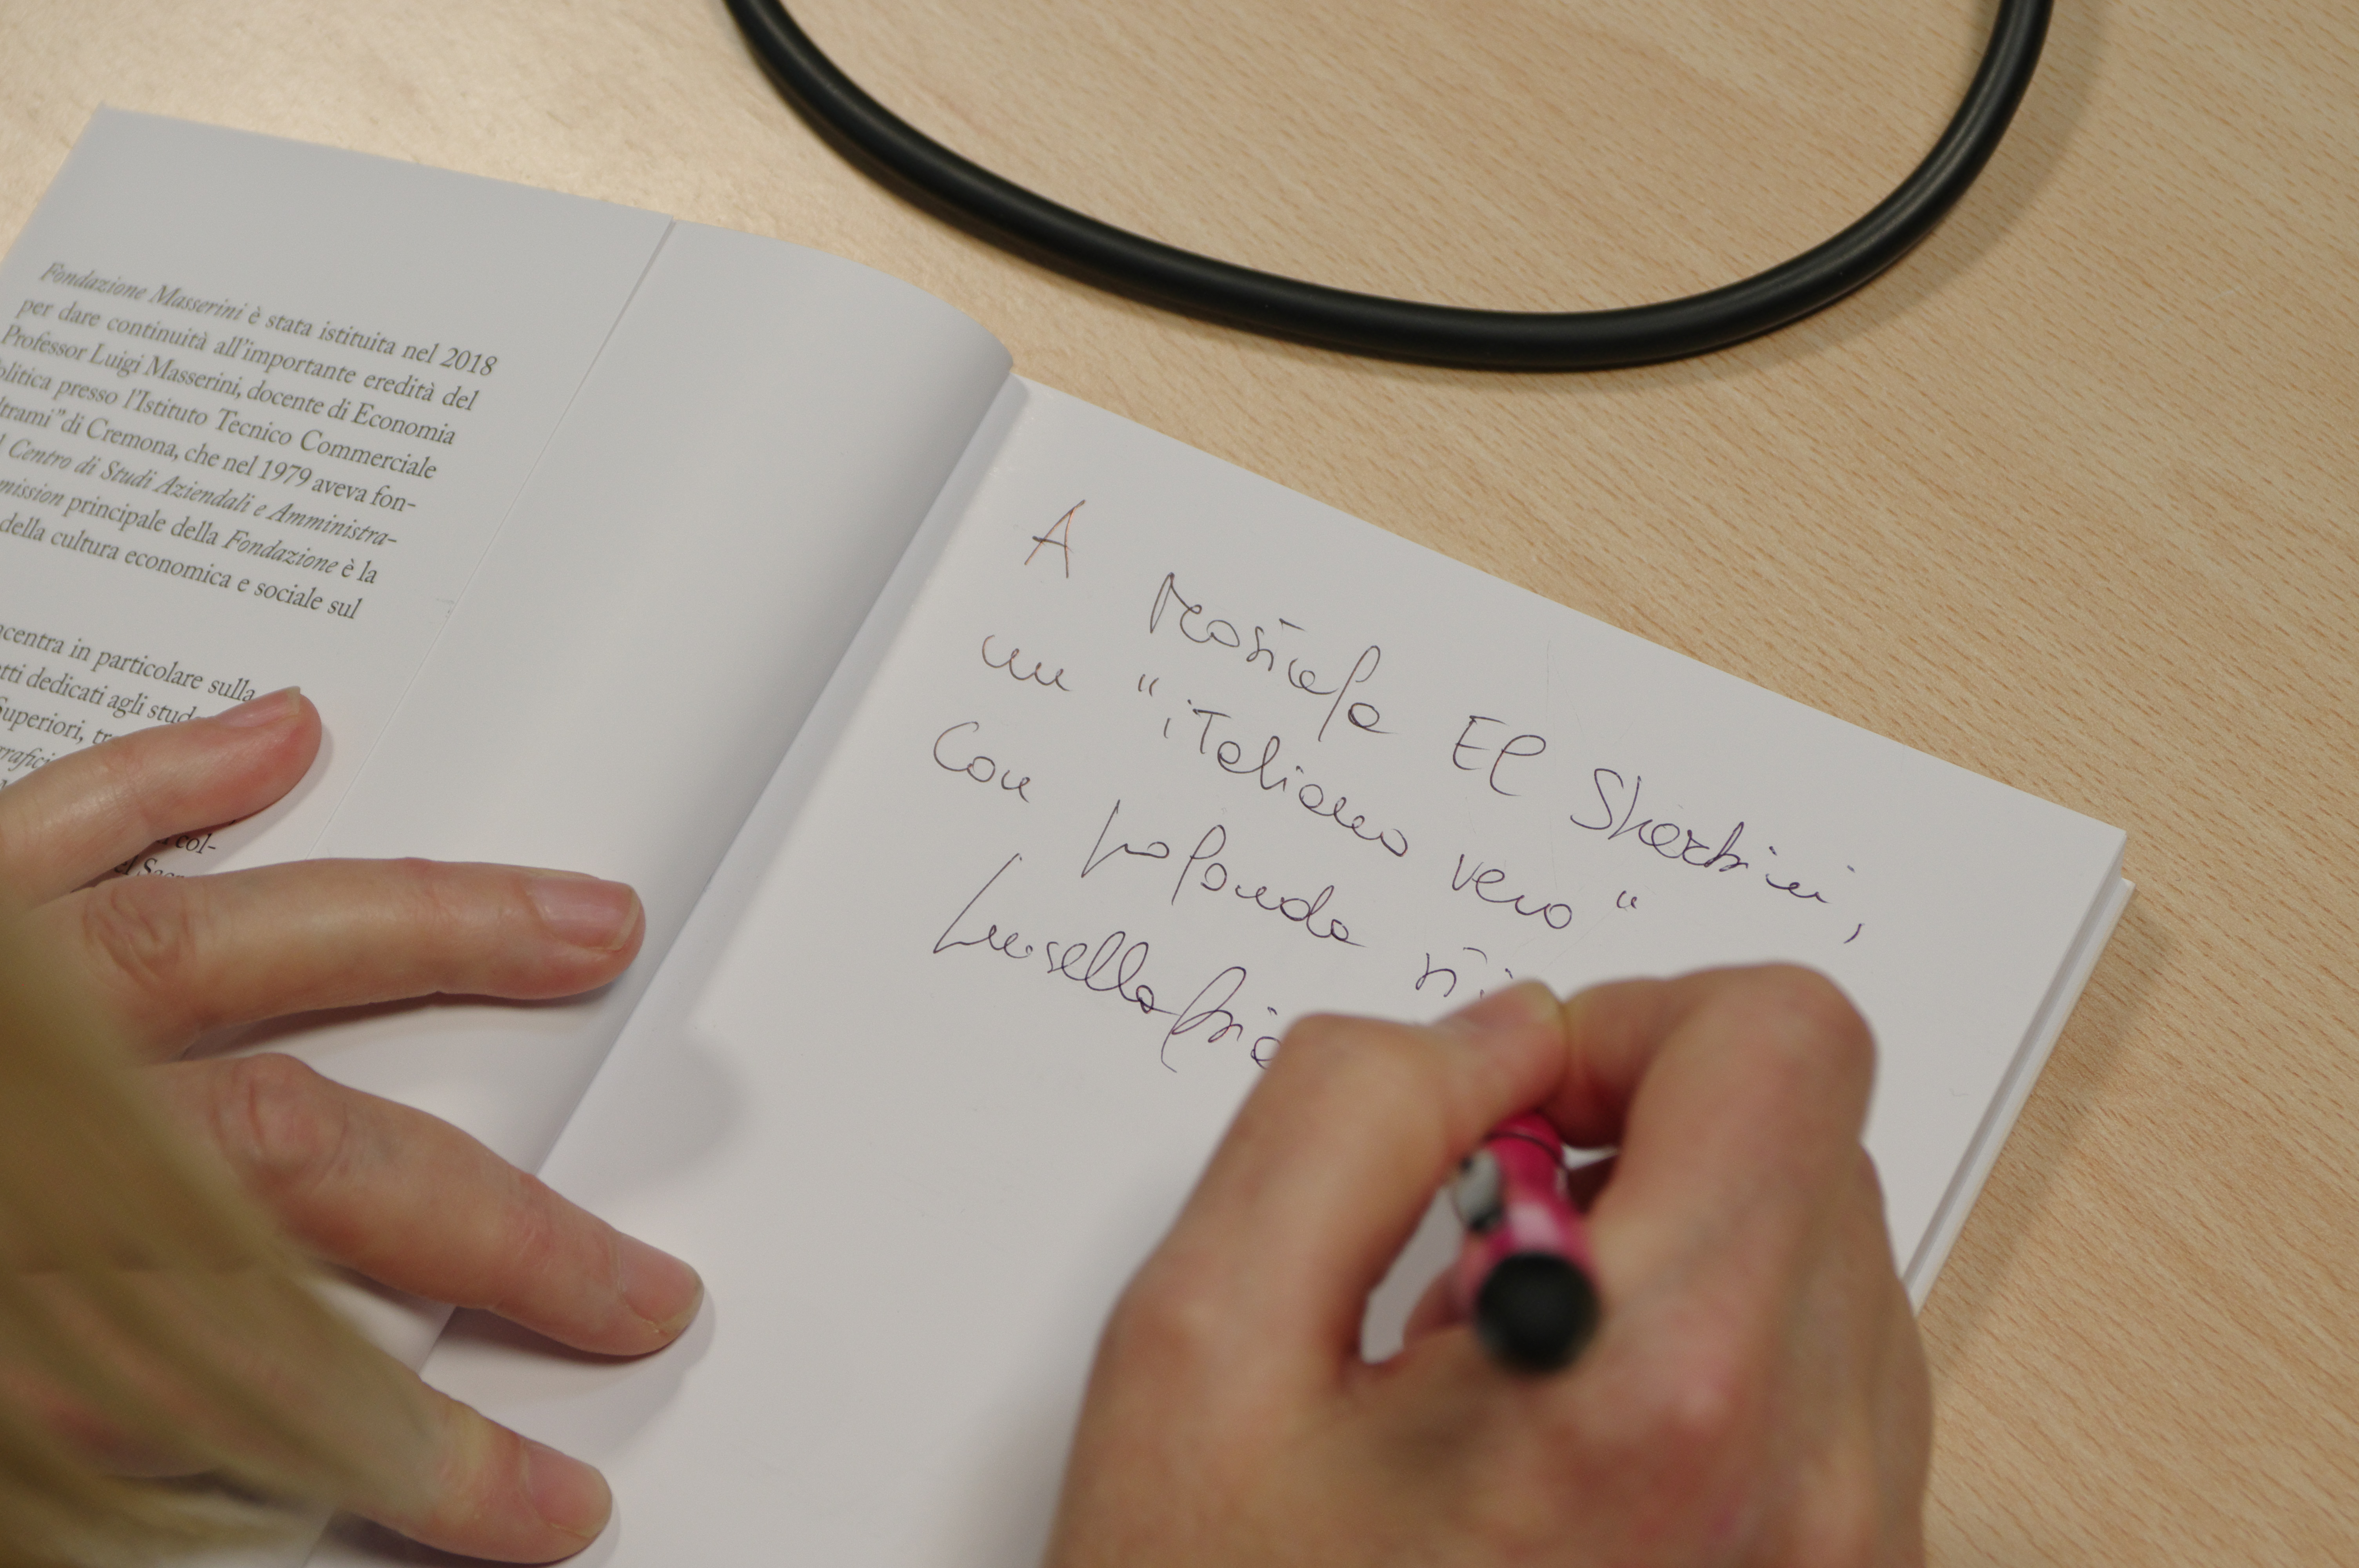 Fondazione Masserini è stata istituita nel 2018
per dare continuità all'importante eredità del
Professor Luigi Masserini, docente di Economia
olitica presso l'Istituto Tecnico Commerciale
ltrami" di Cremona, che nel 1979 aveva fon-
Centro di Studi Aziendali e Amministra-
mission principale della Fondazione è la
della cultura economica e sociale sul
centra in particolare sulla
tti dedicati agli stud
Superiori, tr
rafici
col-
el Sacr
A Mostafa El Sherbini,
un "italiano vero"
Con profonda sti
Luisella